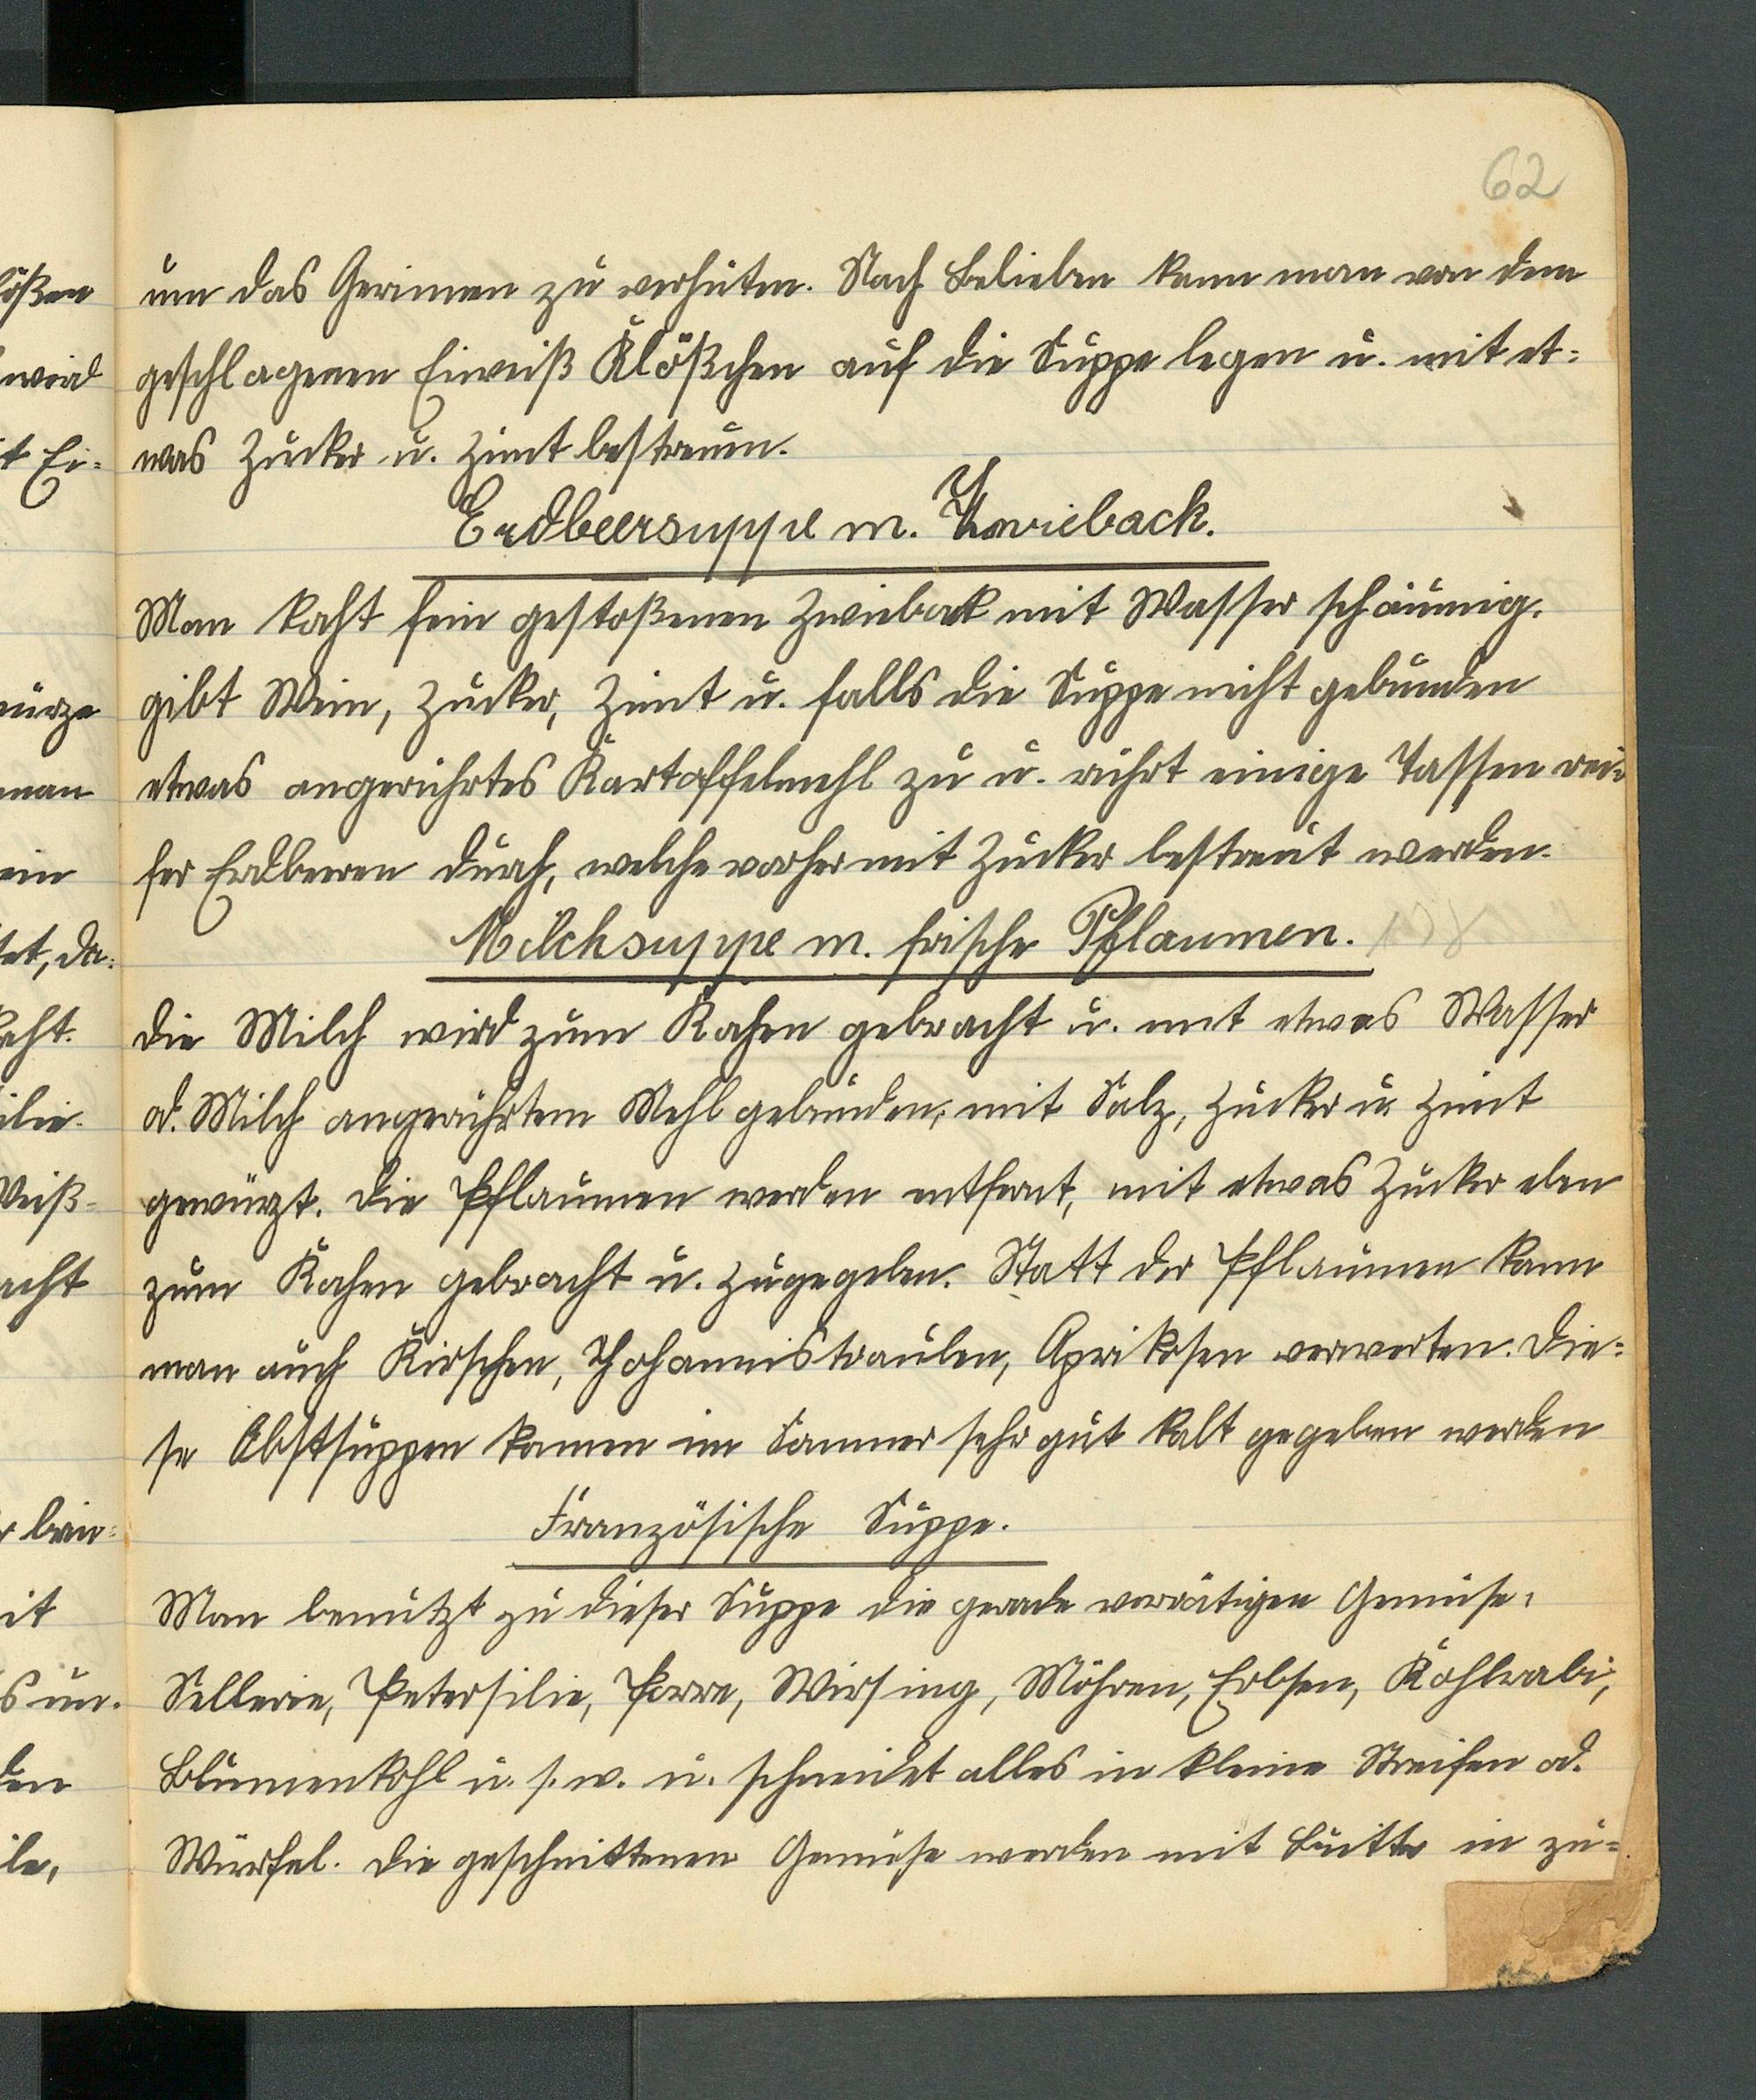 62
um das Gerinnen zu verhüten. Nach Belieben kann man von dem
geschlagenen Eiweiß Klößchen auf die Suppe legen u. mit et=
was Zucker u. Zimt bestreuen.
Erdbeersuppe m. Zwieback.
Man kocht fein gestoßenen Zwieback mit Wasser schäumig,
gibt Wein, Zucker, Zimt u. falls die Suppe nicht gebunden
etwas angerührtes Kartoffelmehl zu u. rührt einige Tassen rei=
fer Erdbeeren durch, welche vorher mit Zucker bestreut werden.
Milchsuppe m. frische Pflaumen.
Die Milch wird zum Kochen gebracht u. mit etwas Wasser
od. Milch angerührtem Mehl gebunden, mit Salz, Zucker u. Zimt
gewürzt. Die Pflaumen werden entfernt, mit etwas Zucker eben
zum Kochen gebracht u. zugegeben. Statt der Pflaumen kann
man auch Kirschen, Johannistrauben, Aprikosen verwerten. Die=
se Obstsuppen kannen im Sommer sehr gut kalt gegeben werden
Französische Suppe.
Man benutzt zu dieser Suppe die gerade vorrätigen Gemüse,
Sellerie, Petersilie, Porre, Wirsing, Möhren, Erbsen, Kohlrabi,
Blumenkohl u. s. w. u. schneidet alles in kleine Streifen od.
Würfel. Die geschnittenen Gemüse werden mit Butter in zu=